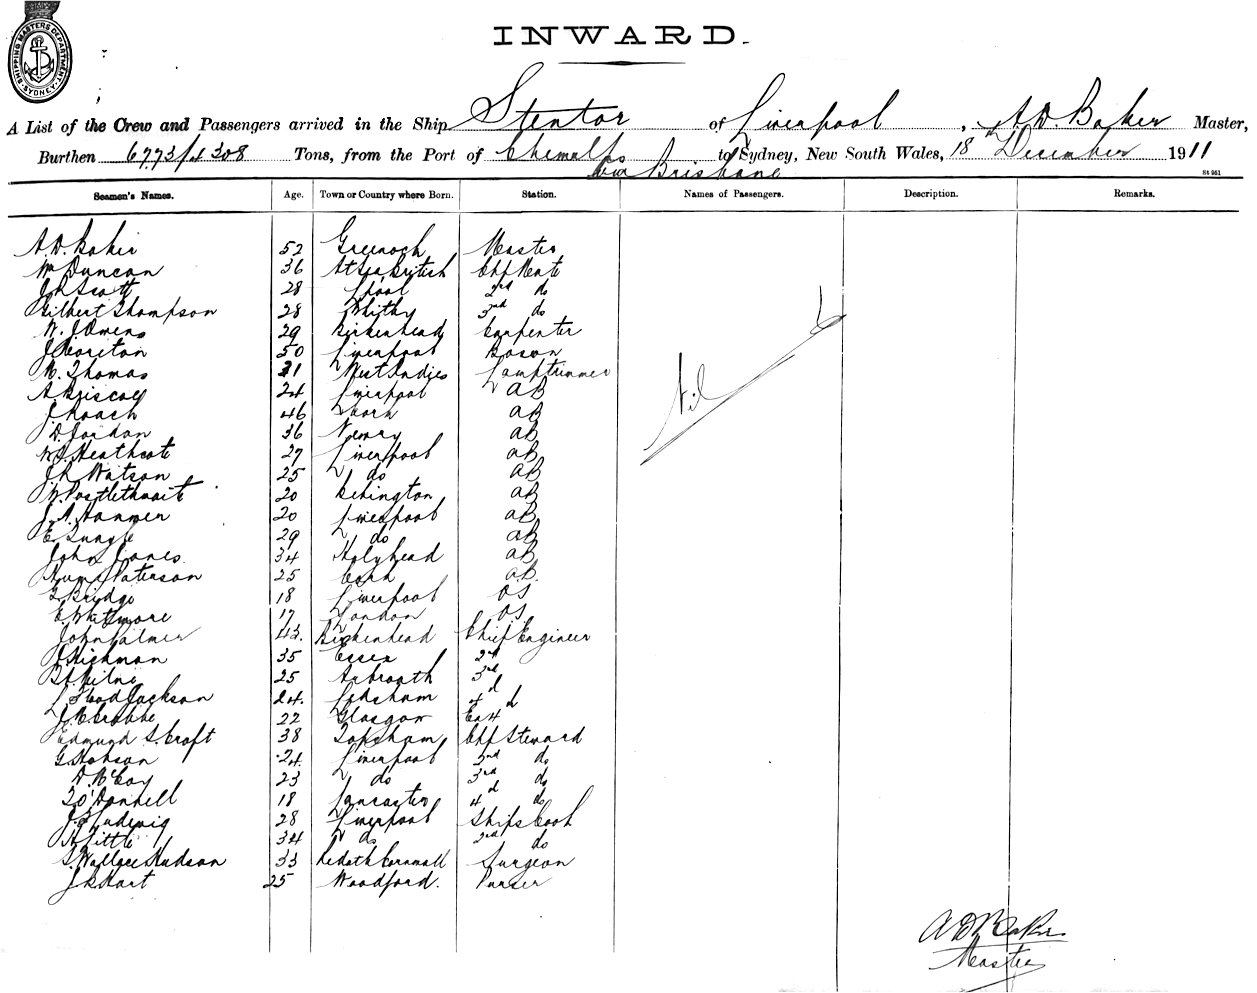 SHIPPING MASTERS DEPARTMENT. SYDNEY.
INWARD.
A List of the Crew and Passengers arrived in the Ship Stentor of Liverpool, A.D. Baker Master,
Burthen 6773/4308 Tons, from the Port of to Sydney, New South Wales, 18th December 1911
via Brisbane
St 951
Seamen's Names. Age. Town or Country where Born. Station. Names of Passengers. Description. Remarks.
A.D. Baker 52 Greenock Master
Wm Duncan 36 At Sea British Chf Mate
J.R. Scott 28 L'pool 2nd do
Gilbert Thompson 28 Whitby 3rd do
W. J. Owens 29 Birkenhead Carpenter
50 Liverpool Bosun
M. Thomas 31 West Indies Lamptrimmer
A. Briscoe 24 Liverpool AB
J. Roach 46 Cork AB
D. Jordan 36 Newry AB
W.S. Heathcote 27 Liverpool AB
J.R. Watson 25 do AB
W. Postlethwaite 20 Bebington AB
J.A. Hanmer 20 Liverpool AB
E. 29 do AB
John Jones 34 Holyhead AB
Paterson 25 Cork AB
Bridge 18 Liverpool OS
E. Whitmore 17 London OS
John Palmer 43 Birkenhead Chief Engineer
J. Hickman 35 Essex 2nd
Milne 25 Arbroath 3rd
L. Flood Jackson 24 Ledsham 4th d
J. McCrobbe 22 Glasgow Ex 4
Edmund S. Croft 38 Topsham Chf Steward
G. Hobson 24 Liverpool 2nd do
D. McCoy 23 do 3rd do
T. O'Donnell 18 Lancaster 4th do
J. Ludewig 28 Liverpool Ships Cook
A. Little 34 do 2nd do
S. Wallace Hudson 33 Redath Cornwall Surgeon
J. R. Hart 25 Woodford. Purser
Nil
A D Baker
Master